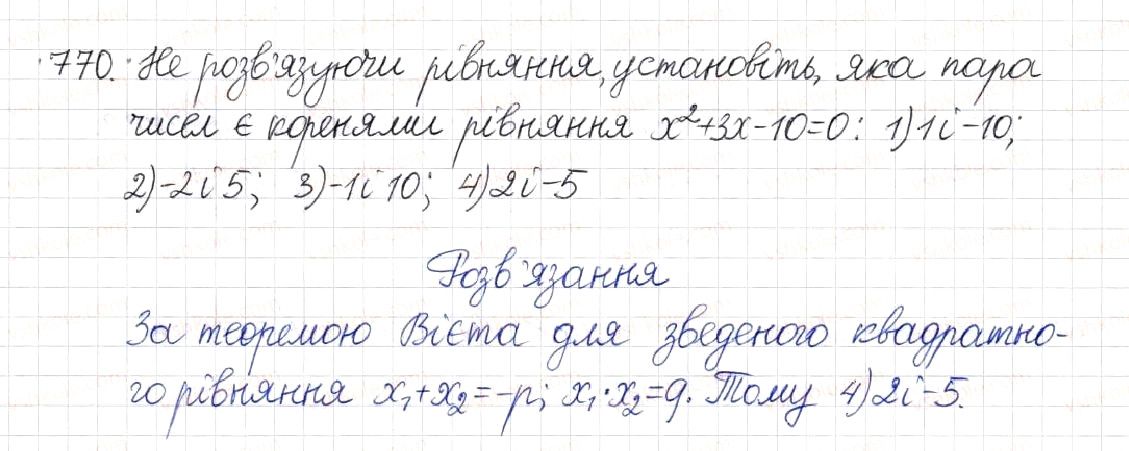 770. Не розв'язуючи рівняння, установіть, яка пара
чисел є коренями рівняння x²+3x-10=0: 1) 1 і -10;
2) -2 і 5; 3) -1 і 10; 4) 2 і -5
Розв'язання
За теоремою Вієта для зведеного квадратно-
го рівняння x₁+x₂=-p; x₁·x₂=q. Тому 4) 2 і -5.